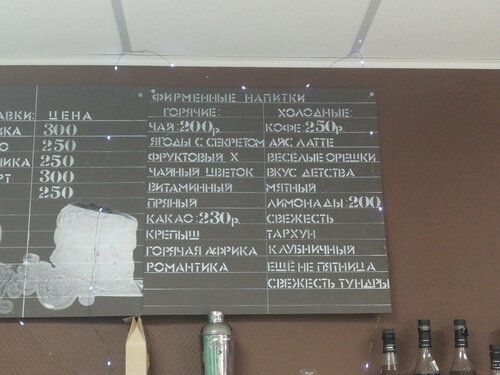 ЦЕНА
300
250
250
300
250
ФИРМЕННЫЕ НАПИТКИ
ГОРЯЧИЕ:
ЧАЙ: 200р.
ЯГОДЫ С СЕКРЕТОМ
ФРУКТОВЫЙ Х
ЧАЙНЫЙ ЦВЕТОК
ВИТАМИННЫЙ
ПРЯНЫЙ
КАКАО: 230р.
КРЕПЫШ
ГОРЯЧАЯ АФРИКА
РОМАНТИКА
ХОЛОДНЫЕ:
КОФЕ: 250р.
АЙС ЛАТТЕ
ВЕСЁЛЫЕ ОРЕШКИ
ВКУС ДЕТСТВА
МЯТНЫЙ
ЛИМОНАДЫ: 200
СВЕЖЕСТЬ
ТАРХУН
КЛУБНИЧНЫЙ
ЕЩЁ НЕ ПЯТНИЦА
СВЕЖЕСТЬ ТУНДРЫ